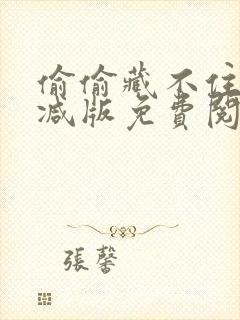 偷偷藏不住
减版免費閱
張馨